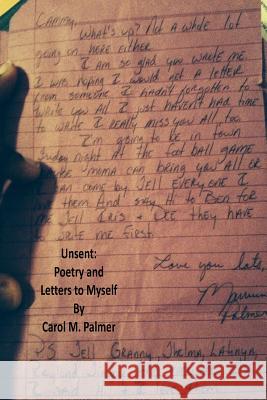 Cammy,
What's up? Not a whole lot
going on here either.
I am so glad you wrote me.
I was hoping I would get a letter
from someone. I hadn't forgotten to
write you all I just haven't had time
to write I really miss you all, too.
I'm going to be in town
Friday night at the foot ball game
mama can bring you all or
I can come by Tell everyone I
love them And say Hi to Ben for
me Tell Iris & Dee they have
to write me first.
Love you lots,
Palmer
PS Tell Granny, Thelma, Latonya,
Unsent:
Poetry and
Letters to Myself
By
Carol M. Palmer